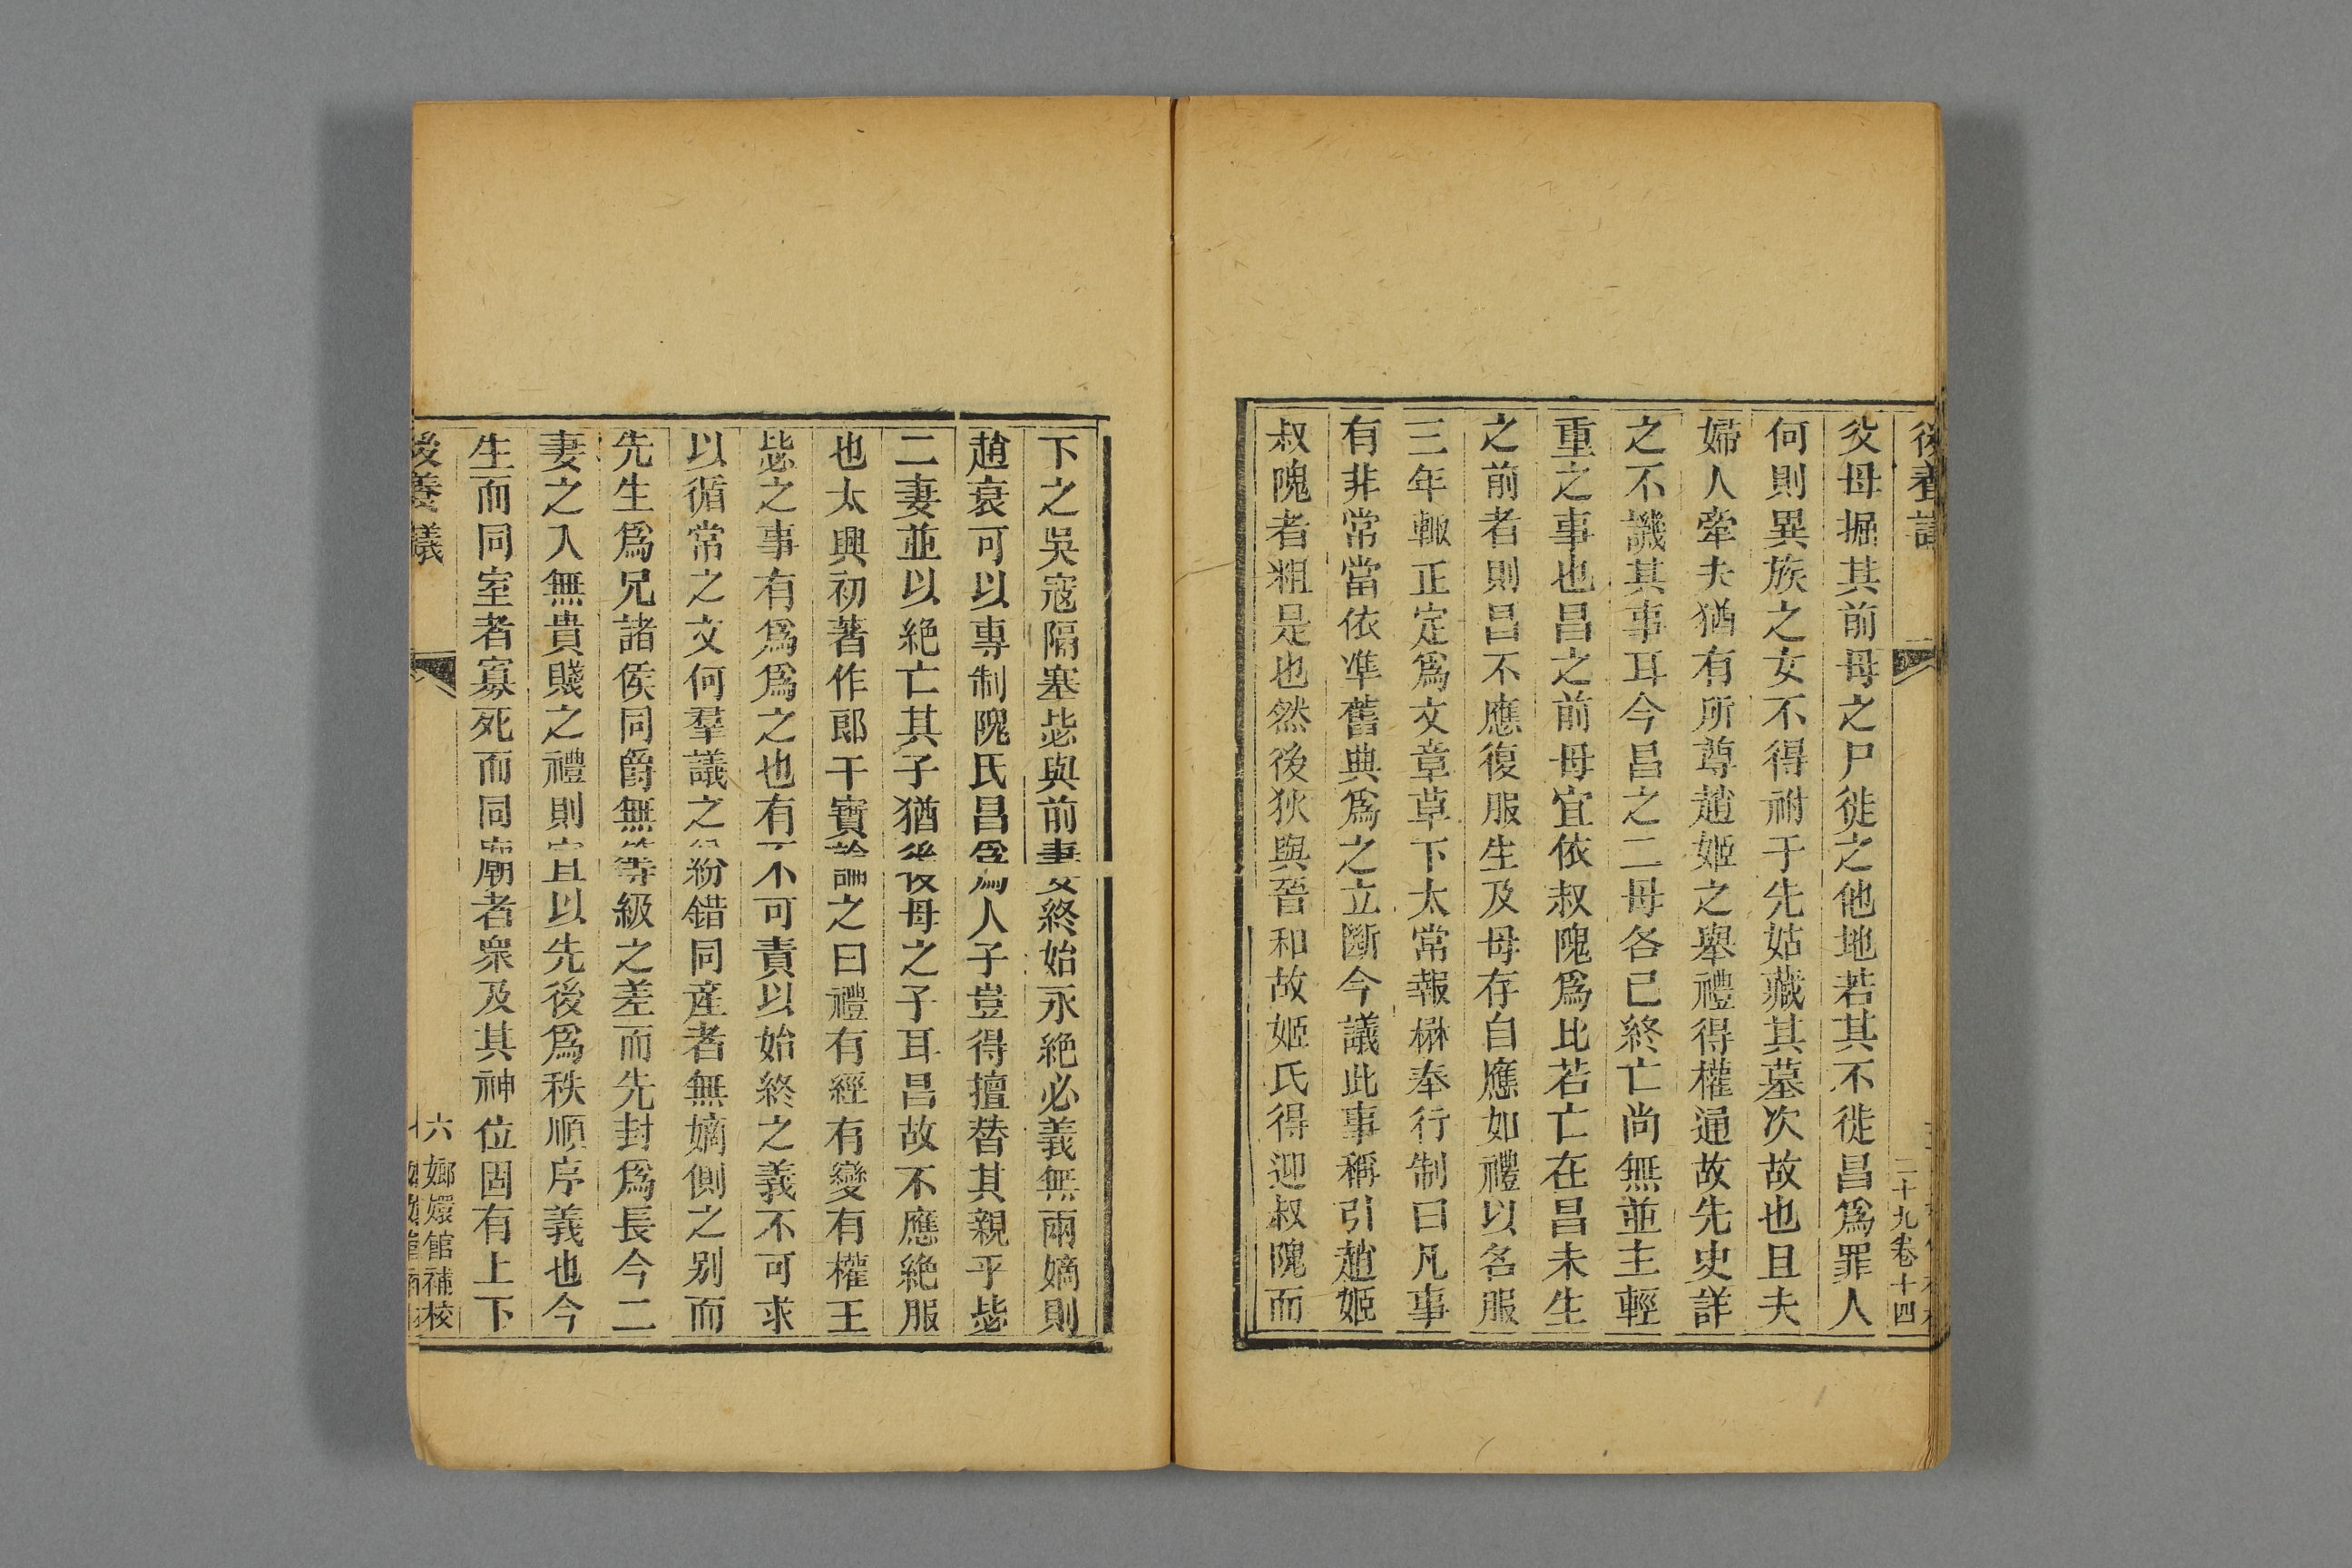 二十九卷十四
父母掘其前母之尸徙之他地若其不徙昌爲罪人
何則異族之女不得祔于先姑藏其墓次故也且夫
婦人牽夫猶有所尊趙姬之舉禮得權通故先史詳
之不譏其事耳今昌之二母各已終亡尚無並主輕
重之事也昌之前母宜依叔隗爲比若亡在昌未生
之前者則昌不應復服生及母存自應如禮以名服
三年輙正定爲文章草下太常報楙奉行制曰凡事
有非常當依準舊典爲之立斷今議此事稱引趙姬
叔隗者粗是也然後狄與晉和故姬氏得迎叔隗而
下之吳寇隔塞毖與前妻終始永絶必義無兩嫡則
趙衰可以專制隗氏昌爲人子豈得擅替其親平毖
二妻並以絶亡其子猶後母之子耳昌故不應絶服
也太興初著作郎干寶論之曰禮有經有變有權王
毖之事有爲爲之也有不可責以始終之義不可求
以循常之文何羣議之紛錯同産者無嫡側之别而
先生爲兄諸侯同爵無等級之差而先封爲長今二
妻之入無貴賤之禮則宜以先後爲秩順序義也今
生而同室者寡死而同廟者衆及其神位固有上下
後養議
六
嫏嬛館補校